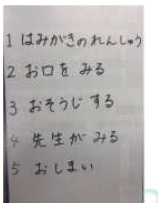 1 はみがきのれんしゅう
2 お口を みる
3 おそうじ する
4 先生が みる
5 おしまい